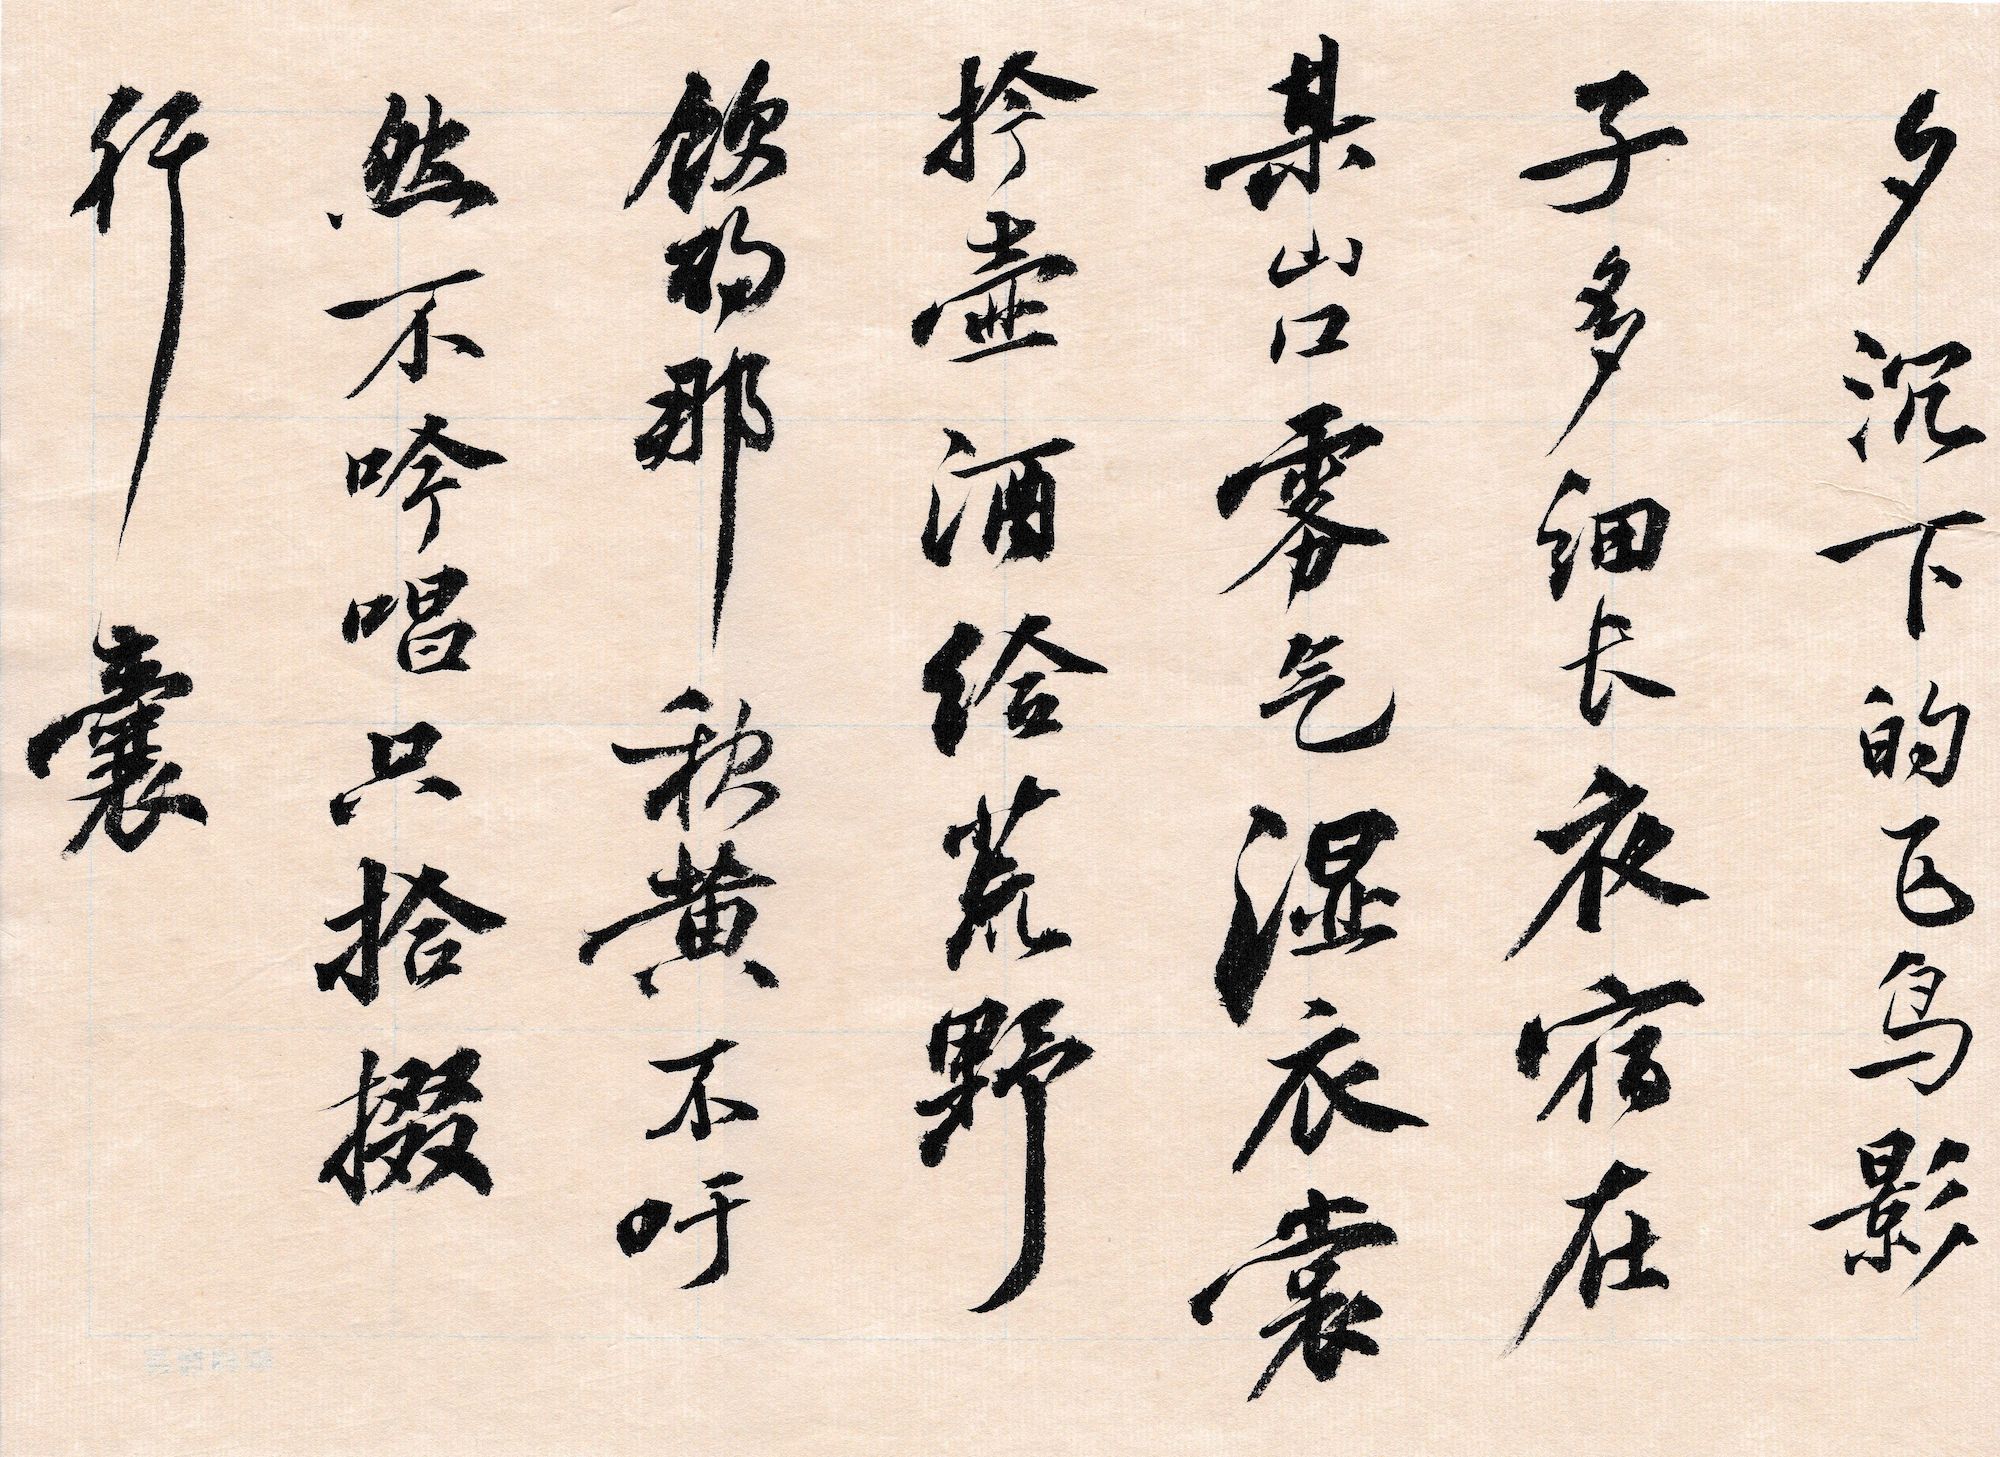 夕沉下的飞鸟影
子多细长夜宿在
某山口雾气湿衣裳
拎壶酒给荒野
飲那秋黄不吁
然不吟唱只拾掇
行囊